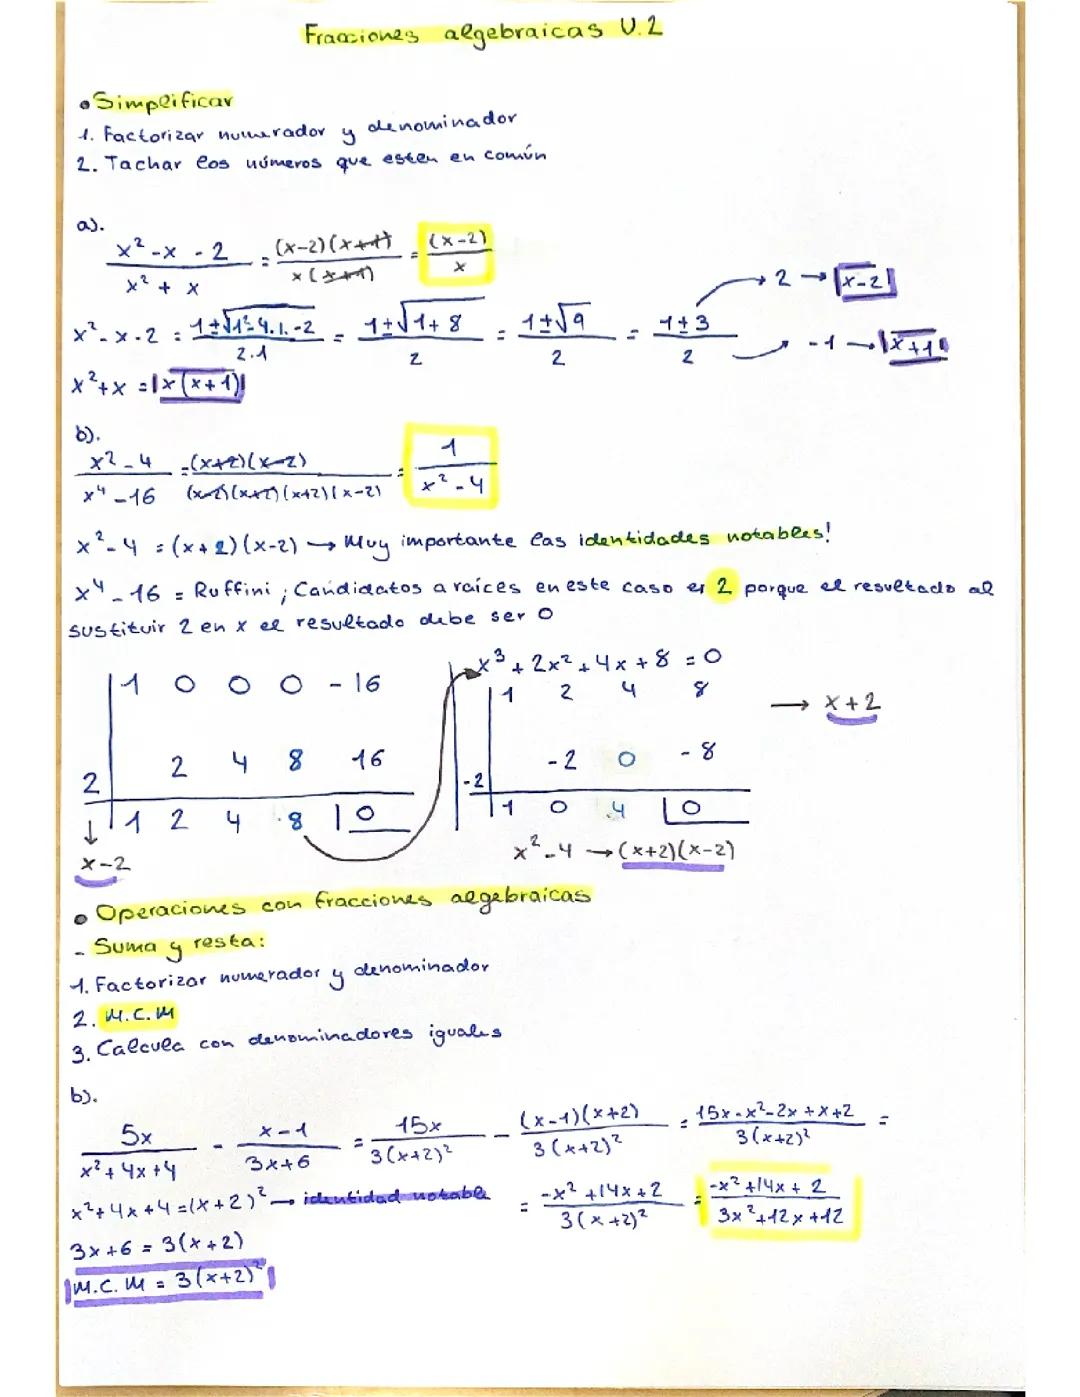 Fracciones algebraicas U.2
• Simplificar
1. Factorizar numerador y denominador
2. Tachar los números que esten en común
a).
x² - x - 2 / x² + x = (x-2)(x+1) / x(x+1) = (x-2) / x
x² - x - 2 = 1±√1²-4.1.-2 / 2.1 = 1±√1+8 / 2 = 1±√9 / 2 = 1±3 / 2 → 2 → |x-2|
→ -1 → |x+1|
x²+x = |x(x+1)|
b).
x²-4 / x⁴-16 = (x+2)(x-2) / (x-2)(x+2)(x+2)(x-2) = 1 / x²-4
x²-4 = (x+2)(x-2) → Muy importante las identidades notables!
x⁴-16 = Ruffini ; Candidatos a raíces en este caso es 2 porque el resultado al
sustituir 2 en x el resultado debe ser 0
x³+2x²+4x+8 = 0
1 0 0 0 -16
1 2 4 8 → x+2
2 2 4 8 16
-2 -2 0 -8
1 2 4 8 |0
1 0 4 |0
↓
x-2
x²-4 → (x+2)(x-2)
• Operaciones con fracciones algebraicas
- Suma y resta:
1. Factorizar numerador y denominador
2. M.C.M
3. Calcula con denominadores iguales
b).
5x / x²+4x+4 - x-1 / 3x+6 = 15x / 3(x+2)² - (x-1)(x+2) / 3(x+2)² = 15x-x²-2x+x+2 / 3(x+2)² =
x²+4x+4 = (x+2)² → identidad notable
= -x²+14x+2 / 3(x+2)² = -x²+14x+2 / 3x²+12x+12
3x+6 = 3(x+2)
|M.C.M = 3(x+2)²|